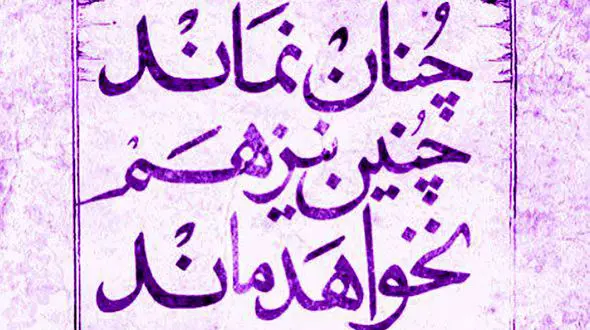 چُنان نماند
چُنین نیز هم
نخواهد ماند